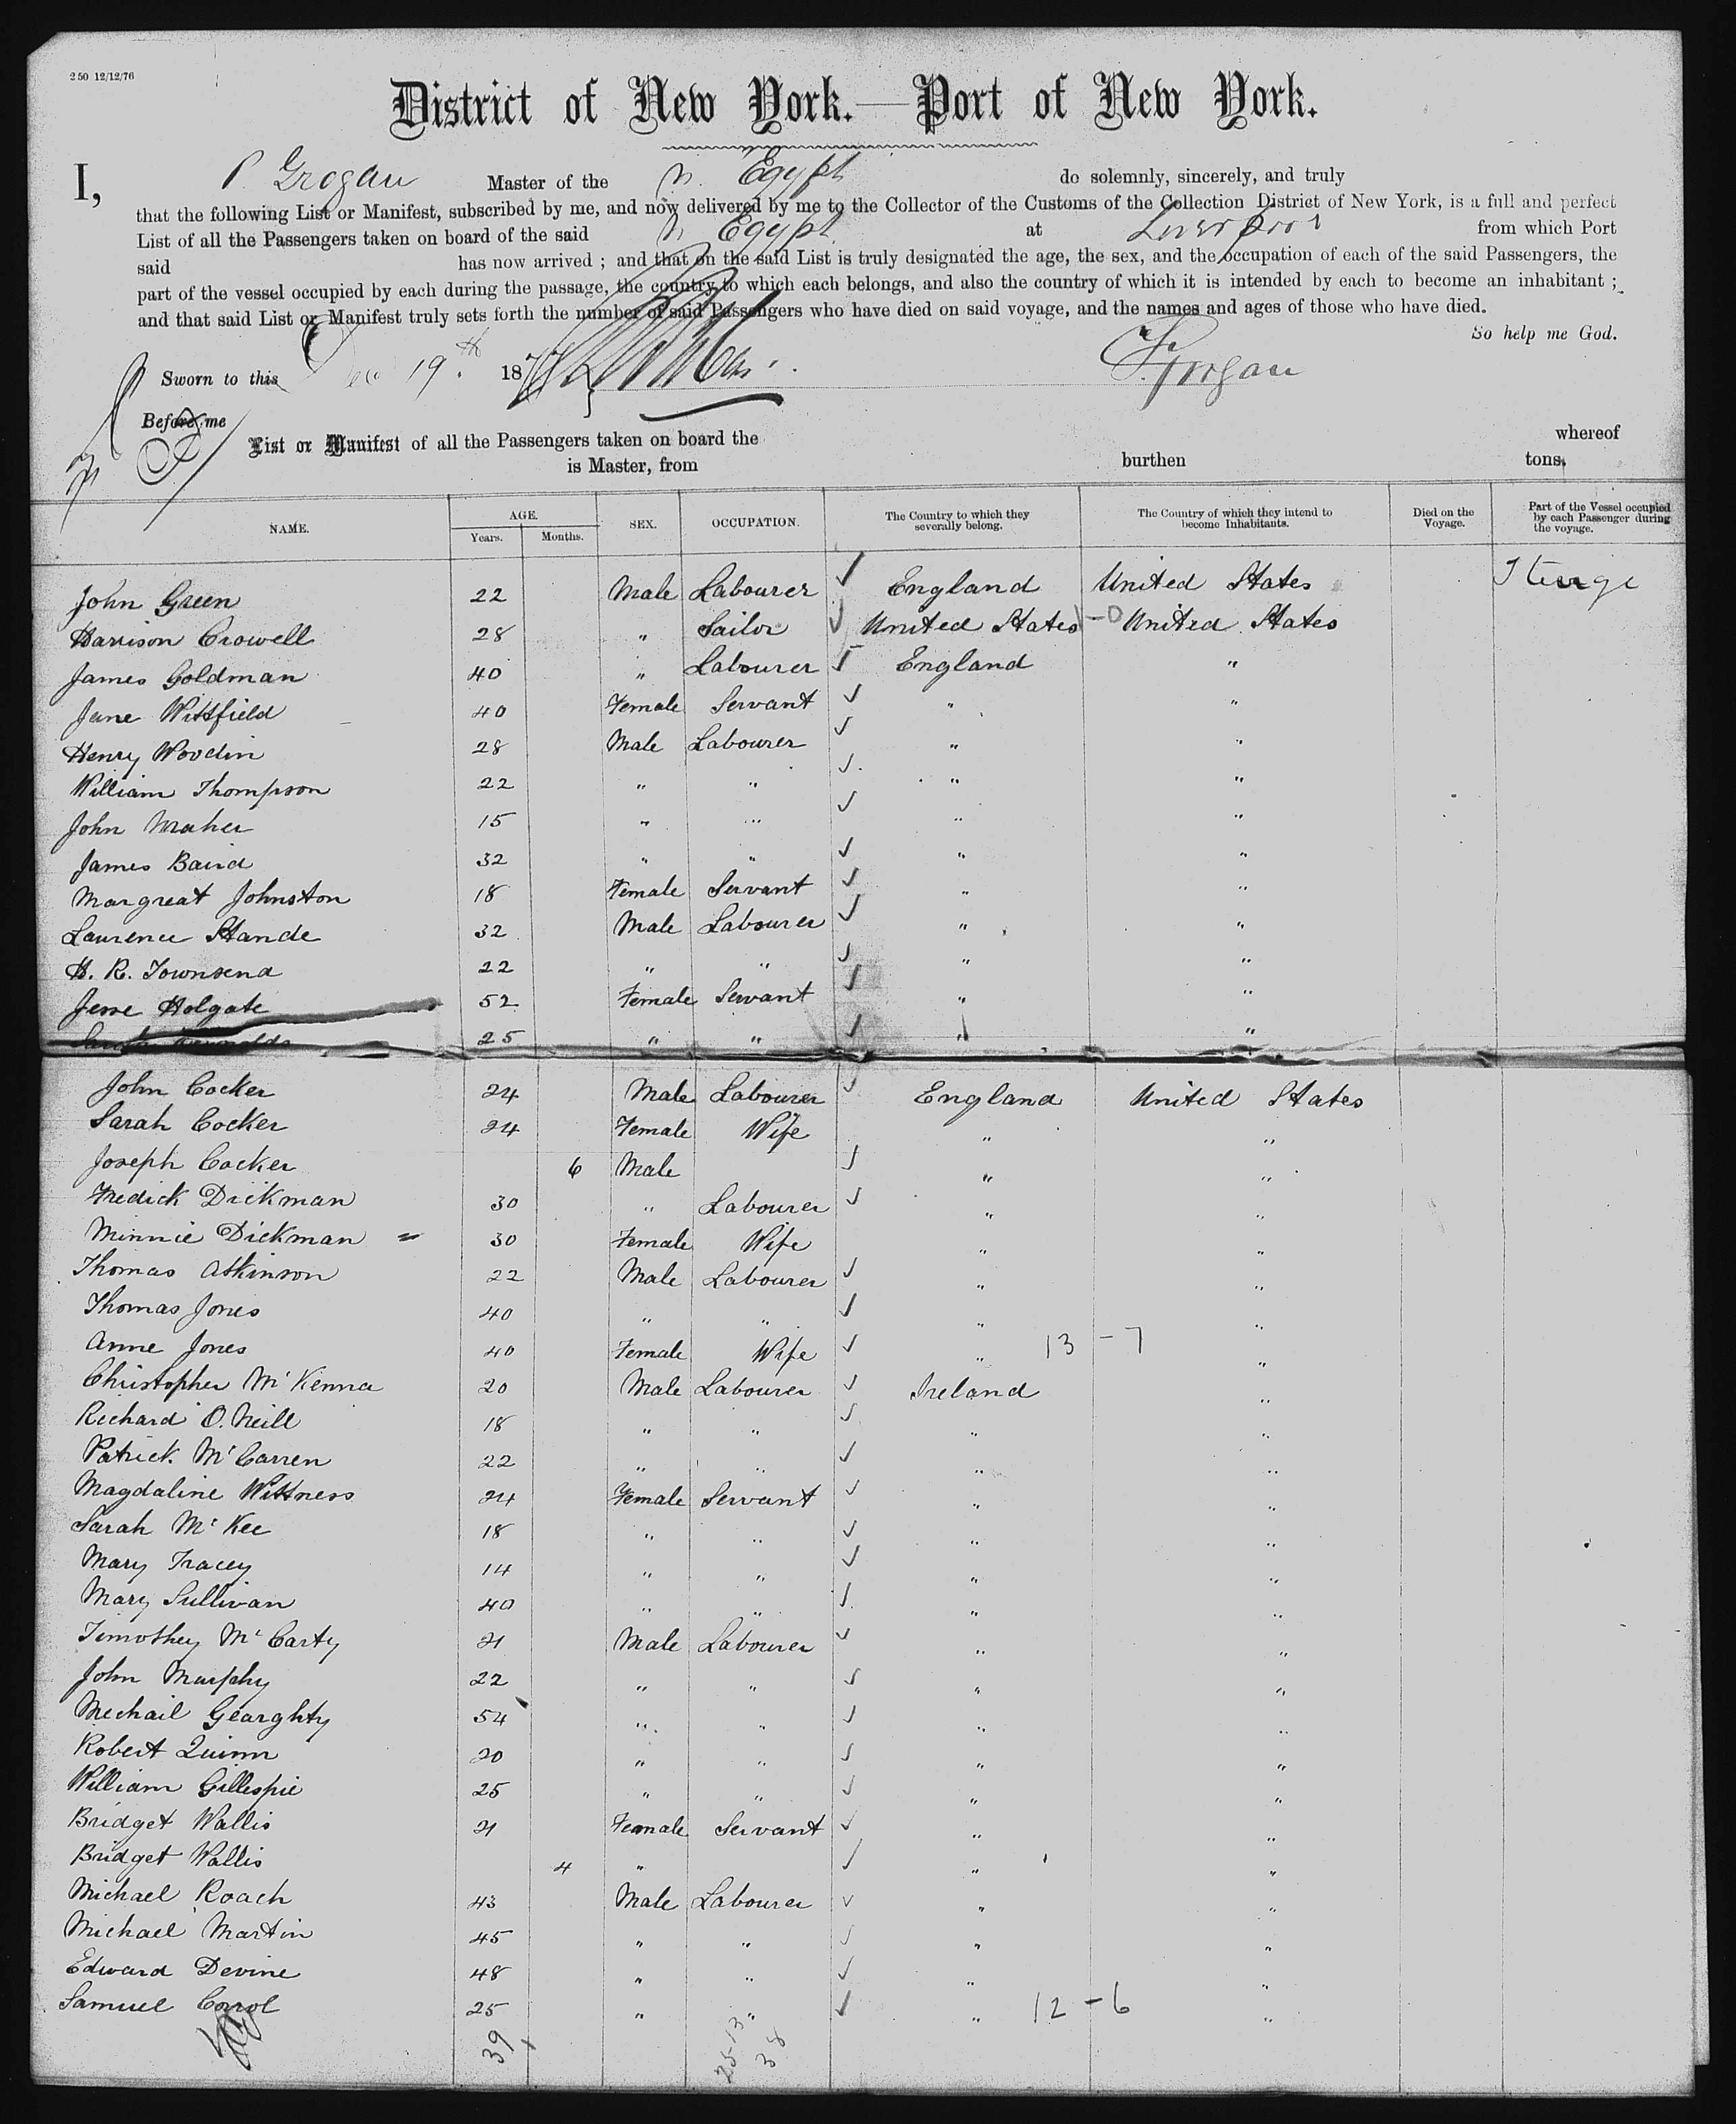 250 12/12/76
District of New York.—Port of New York.
I, P. Grogan Master of the Egypt do solemnly, sincerely, and truly
that the following List or Manifest, subscribed by me, and now delivered by me to the Collector of the Customs of the Collection District of New York, is a full and perfect
List of all the Passengers taken on board of the said Egypt at Liverpool from which Port
said has now arrived ; and that on the said List is truly designated the age, the sex, and the occupation of each of the said Passengers, the
part of the vessel occupied by each during the passage, the country to which each belongs, and also the country of which it is intended by each to become an inhabitant ;
and that said List or Manifest truly sets forth the number of said Passengers who have died on said voyage, and the names and ages of those who have died.
So help me God.
Sworn to this Dec 19th 1877 Grogan
Before me
List or Manifest of all the Passengers taken on board the whereof
is Master, from burthen tons.
NAME. AGE. Years. Months. SEX. OCCUPATION. The Country to which they severally belong. The Country of which they intend to become Inhabitants. Died on the Voyage. Part of the Vessel occupied by each Passenger during the voyage.
John Green 22 Male Labourer ✓ England United States Sterage
Harrison Crowell 28 " Sailor ✓ United States United States
James Goldman 40 " Labourer ✓ England "
Jane Wittfield 40 Female Servant ✓ " "
Henry Woodin 28 Male Labourer ✓ " "
William Thompson 22 " " ✓ " "
John Maher 15 " " ✓ " "
James Baird 32 " " ✓ " "
Margreat Johnston 18 Female Servant ✓ " "
Laurence Stande 32 Male Labourer ✓ " "
H. R. Townsend 22 " " ✓ " "
Jesse Holgate 52 Female Servant ✓ " "
25 " " ✓ " "
John Cocker 24 Male Labourer ✓ England United States
Sarah Cocker 24 Female Wife " "
Joseph Cocker 6 Male ✓ " "
Fredick Dickman 30 " Labourer ✓ " "
Minnie Dickman 30 Female Wife " "
Thomas Atkinson 22 Male Labourer ✓ " "
Thomas Jones 40 " " ✓ " "
Anne Jones 40 Female Wife ✓ " 13 - 7 "
Christopher McKenna 20 Male Labourer ✓ Ireland "
Richard O.Neill 18 " " ✓ " "
Patrick McCarren 22 " " ✓ " "
Magdaline Wittness 24 Female Servant ✓ " "
Sarah McKee 18 " " ✓ " "
Mary Tracey 14 " " ✓ " "
Mary Sullivan 40 " " ✓ " "
Timothey McCarty 21 Male Labourer ✓ " "
John Murphy 22 " " ✓ " "
Mechail Gearghty 54 " " ✓ " "
Robert Quinn 20 " " ✓ " "
William Gillespie 25 " " ✓ " "
Bridget Wallis 21 Female Servant ✓ " "
Bridget Wallis 4 " ✓ " "
Michael Roach 43 Male Labourer ✓ " "
Michael Martin 45 " " ✓ " "
Edward Devine 48 " " ✓ " "
Samuel Corrol 25 " " ✓ " 12 - 6 "
39
25-13
38